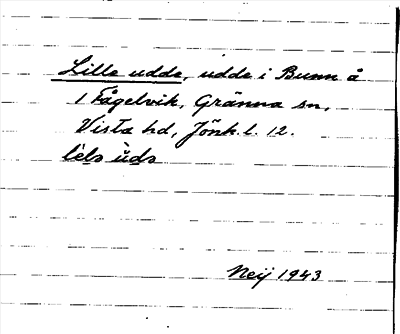 Lille udde, udde i Bunn å
1 Fågelvik, Gränna sn,
Vista hd, Jönk. l. 12.
lels uds
Neij 1943